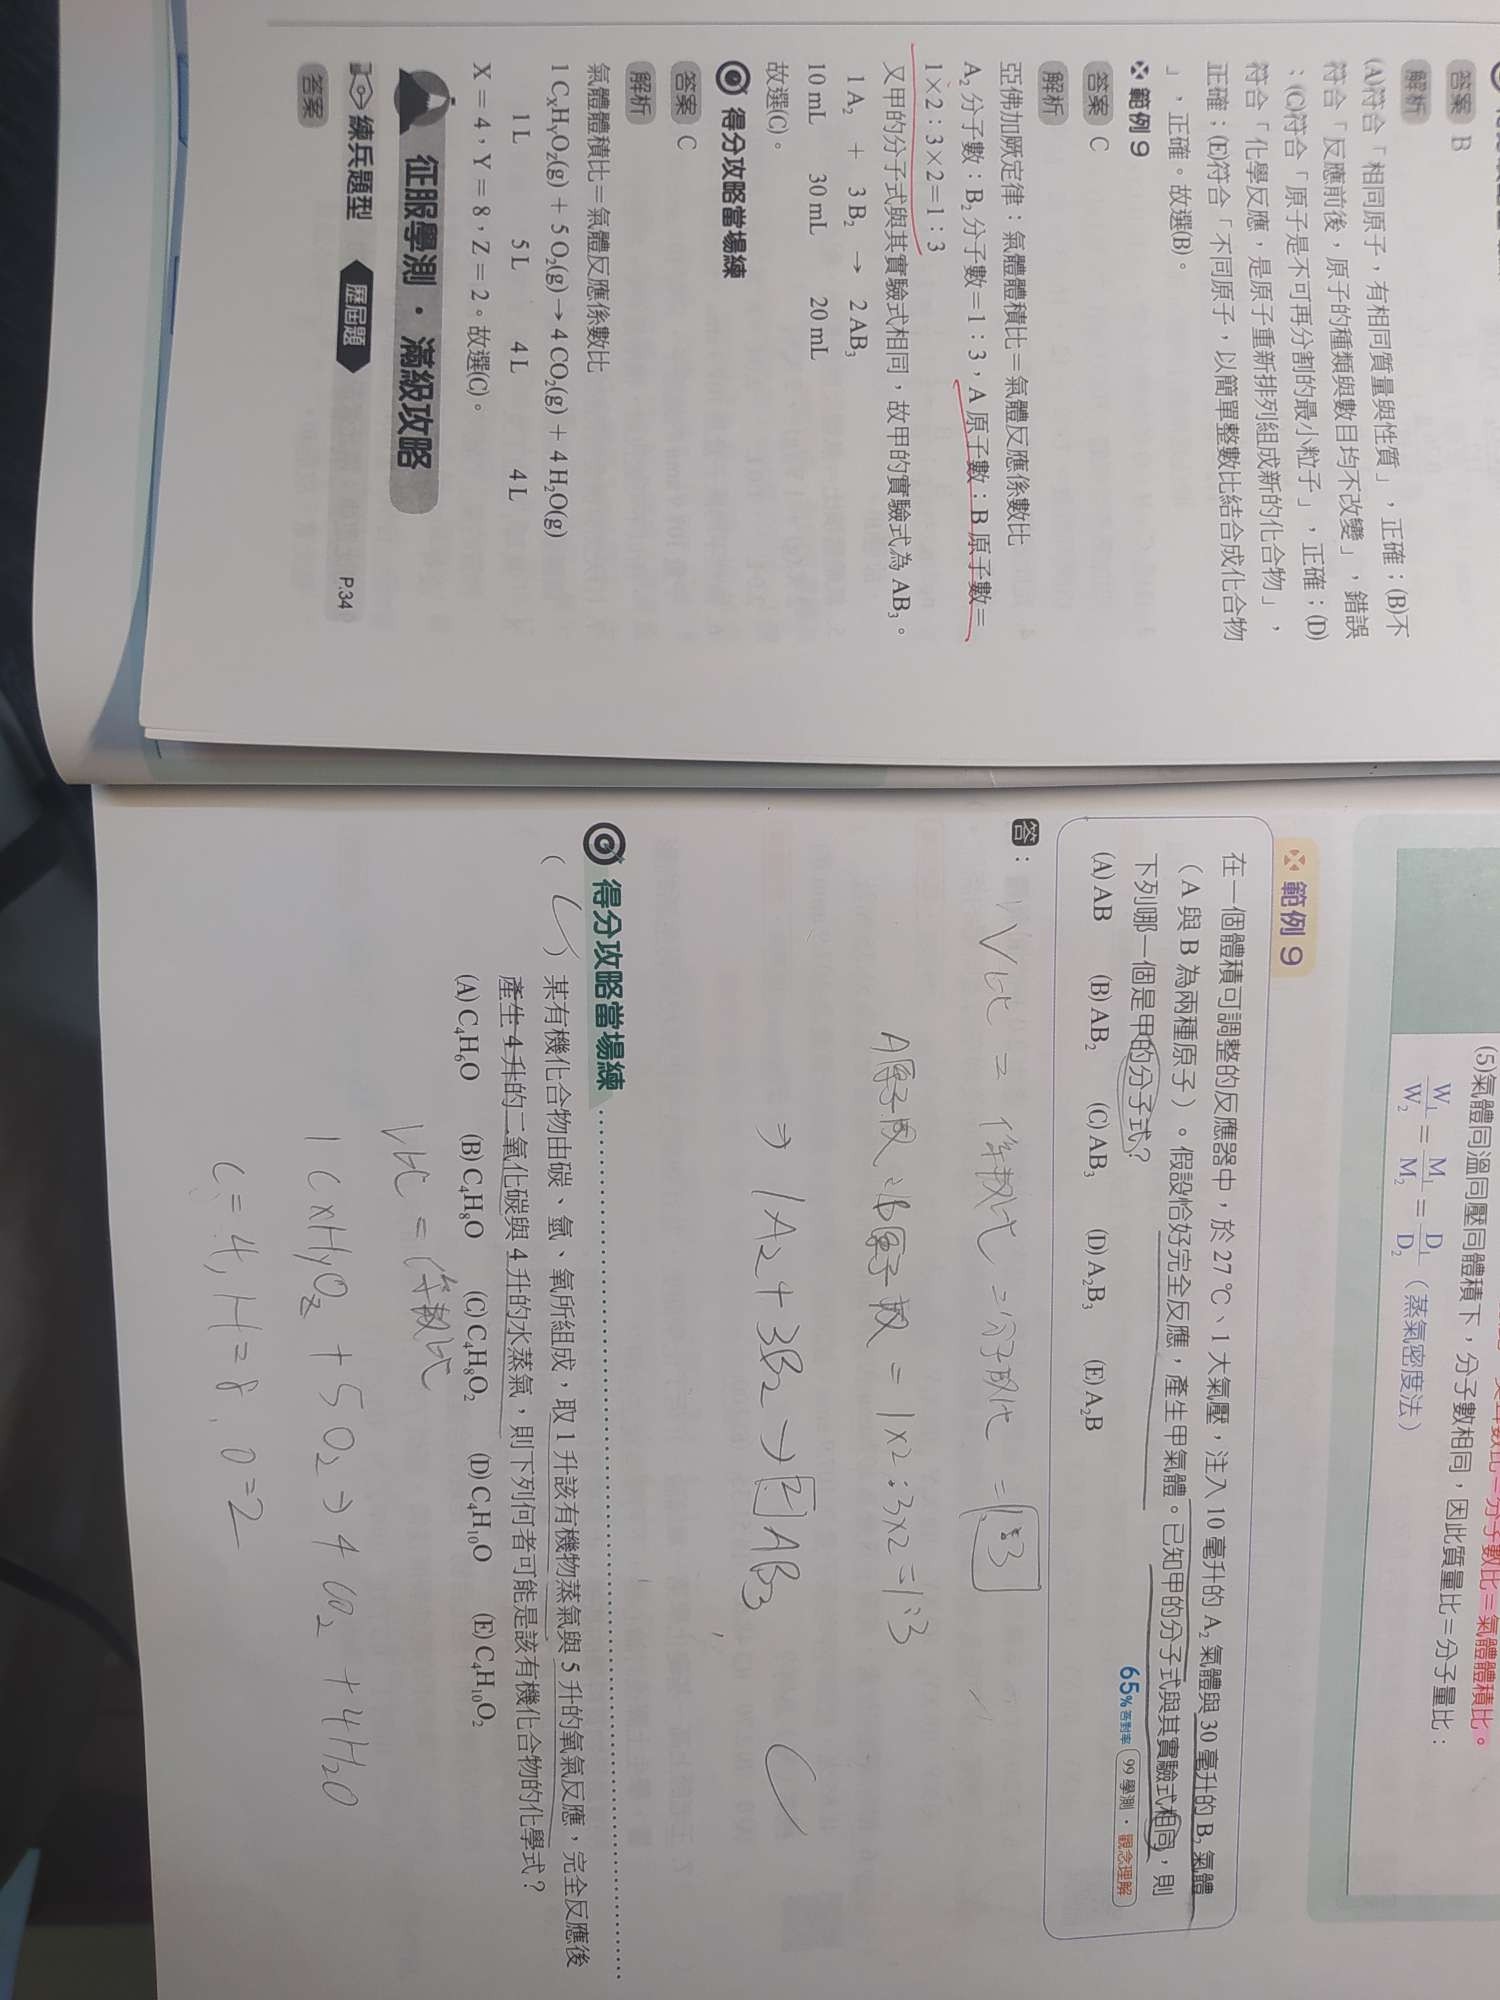 答案 B
解析
(A)符合「相同原子，有相同質量與性質」，正確；(B)不
符合「反應前後，原子的種類與數目均不改變」，錯誤
；(C)符合「原子是不可再分割的最小粒子」，正確；(D)
符合「化學反應，是原子重新排列組成新的化合物」，
正確；(E)符合「不同原子，以簡單整數比結合成化合物
」，正確。故選(B)。
範例 9
答案 C
解析
亞佛加厥定律：氣體體積比＝氣體反應係數比
A₂ 分子數：B₂ 分子數＝1：3，A 原子數：B 原子數＝
1×2：3×2＝1：3
又甲的分子式與其實驗式相同，故甲的實驗式為 AB₃。
1 A₂ ＋ 3 B₂ → 2 AB₃
10 mL 30 mL 20 mL
故選(C)。
得分攻略當場練
答案 C
解析
氣體體積比＝氣體反應係數比
1 CₓHᵧO₂(g)＋5 O₂(g)→4 CO₂(g)＋4 H₂O(g)
1 L 5 L 4 L 4 L
X＝4，Y＝8，Z＝2。故選(C)。
征服學測・滿級攻略
練兵題型 歷屆題 P.34
答案
(5)氣體同溫同壓同體積下，分子數相同，因此質量比＝分子量比：
W₁/W₂＝M₁/M₂＝D₁/D₂（蒸氣密度法）
範例 9
在一個體積可調整的反應器中，於 27 ℃、1 大氣壓，注入 10 毫升的 A₂ 氣體與 30 毫升的 B₂ 氣體
（A 與 B 為兩種原子）。假設恰好完全反應，產生甲氣體。已知甲的分子式與其實驗式相同，則
下列哪一個是甲的分子式？
65% 答對率 99 學測・觀念理解
(A) AB (B) AB₂ (C) AB₃ (D) A₂B₃ (E) A₂B
答：
V比 = 係數比 = 分子數比 = 1:3
A原子數:B原子數 = 1x2:3x2 = 1:3
⇒ 1A₂ + 3B₂ → 2AB₃
C
得分攻略當場練
( C ) 某有機化合物由碳、氫、氧所組成，取 1 升該有機物蒸氣與 5 升的氧氣反應，完全反應後
產生 4 升的二氧化碳與 4 升的水蒸氣，則下列何者可能是該有機化合物的化學式？
(A) C₄H₆O (B) C₄H₈O (C) C₄H₈O₂ (D) C₄H₁₀O (E) C₄H₁₀O₂
V比 = 係數比
1 CxHyOz + 5O₂ → 4CO₂ + 4H₂O
C=4, H=8, O=2